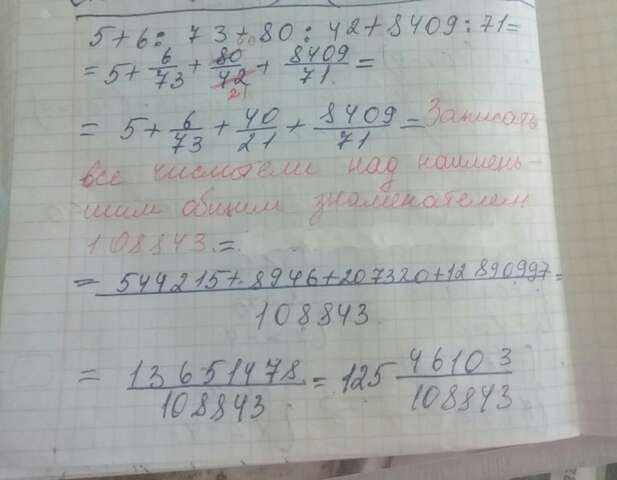 5+6: 73+80: 42+8409:71=
=5+6/73+80/42+8409/71=
40
21
= 5+6/73+40/21+8409/71=Записать
все числители над наимень-
шим общим знаменателем
108843.=
= 544215+8946+207320+12890997/108843=
= 13651478/108843=125 46103/108843